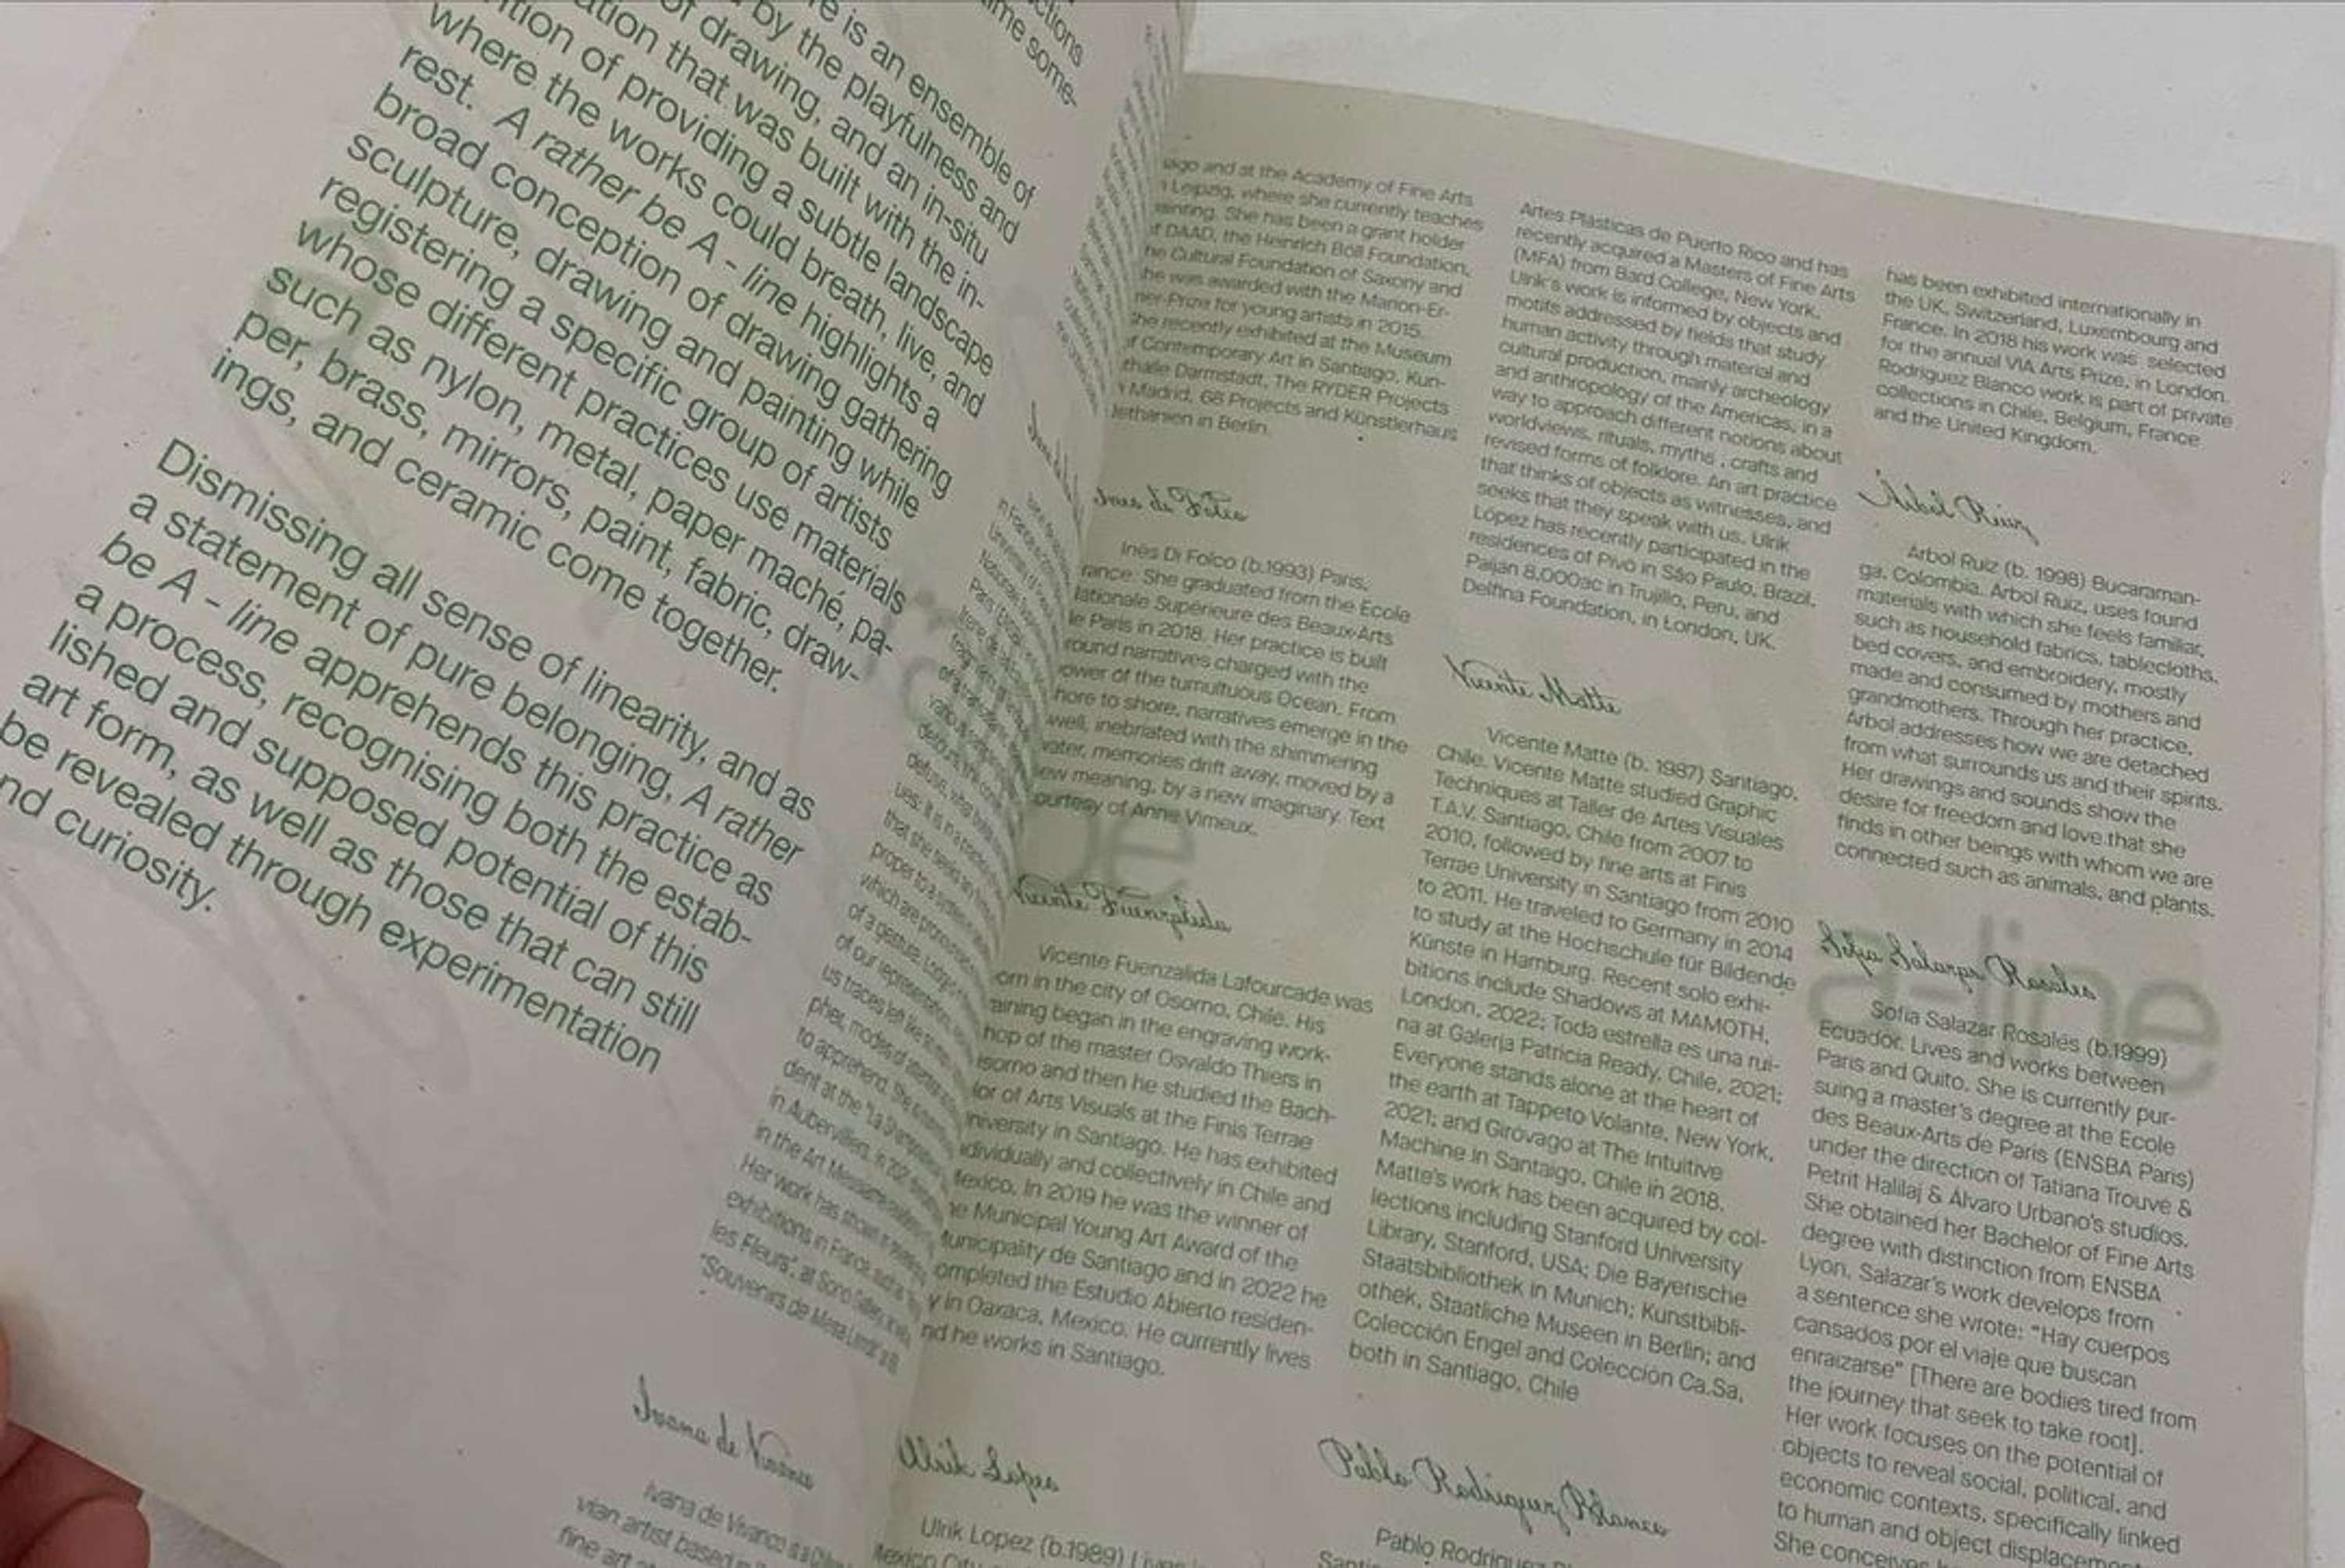 ctions
ime some-
re is an ensemble of
by the playfulness and
of drawing, and an in-situ
ation that was built with the in-
ntion of providing a subtle landscape
where the works could breath, live, and
rest. A rather be A - line highlights a
broad conception of drawing gathering
sculpture, drawing and painting while
registering a specific group of artists
whose different practices use materials
such as nylon, metal, paper maché, pa-
per, brass, mirrors, paint, fabric, draw-
ings, and ceramic come together.
Dismissing all sense of linearity, and as
a statement of pure belonging, A rather
be A - line apprehends this practice as
a process, recognising both the estab-
lished and supposed potential of this
art form, as well as those that can still
be revealed through experimentation
nd curiosity.
ues: it is in a
that she seeks
proper to a
which are
of a gesture.
of our
us traces left like
pher, modes of
to apprehend. She
dent at the "La
in Aubervilliers, in
in the Art
Her work has shown
exhibitions in France, such as
les Fleurs", at Sono
"Souvenirs de
Ivana de Vivanco
Ivana de Vivanco is a
vian artist based
fine art
iago and at the Academy of Fine Arts
n Leipzig, where she currently teaches
ainting. She has been a grant holder
f DAAD, the Heinrich Böll Foundation,
he Cultural Foundation of Saxony and
he was awarded with the Marion-Er-
mer-Prize for young artists in 2015.
he recently exhibited at the Museum
f Contemporary Art in Santiago, Kun-
thalle Darmstadt, The RYDER Projects
n Madrid, 68 Projects and Künstlerhaus
Bethanien in Berlin.
Ines di Folco
Inès Di Folco (b.1993) Paris,
rance. She graduated from the École
Nationale Supérieure des Beaux-Arts
le Paris in 2018. Her practice is built
round narratives charged with the
ower of the tumultuous Ocean. From
hore to shore, narratives emerge in the
well, inebriated with the shimmering
vater, memories drift away, moved by a
ew meaning, by a new imaginary. Text
ourtesy of Anne Vimeux.
be
Vicente Fuenzalida
Vicente Fuenzalida Lafourcade was
orn in the city of Osorno, Chile. His
aining began in the engraving work-
hop of the master Osvaldo Thiers in
sorno and then he studied the Bach-
lor of Arts Visuals at the Finis Terrae
niversity in Santiago. He has exhibited
dividually and collectively in Chile and
Mexico. In 2019 he was the winner of
he Municipal Young Art Award of the
Municipality de Santiago and in 2022 he
ompleted the Estudio Abierto residen-
y in Oaxaca, Mexico. He currently lives
nd he works in Santiago.
Ulrik López
Ulrik Lopez (b.1989) Lives in
Mexico City
Artes Plásticas de Puerto Rico and has
recently acquired a Masters of Fine Arts
(MFA) from Bard College, New York.
Ulrik's work is informed by objects and
motifs addressed by fields that study
human activity through material and
cultural production, mainly archeology
and anthropology of the Americas, in a
way to approach different notions about
worldviews, rituals, myths , crafts and
revised forms of folklore. An art practice
that thinks of objects as witnesses, and
seeks that they speak with us. Ulrik
López has recently participated in the
residences of Pivô in São Paulo, Brazil,
Paiján 8,000ac in Trujillo, Peru, and
Delfina Foundation, in London, UK.
Vicente Matte
Vicente Matte (b. 1987) Santiago,
Chile. Vicente Matte studied Graphic
Techniques at Taller de Artes Visuales
T.A.V. Santiago, Chile from 2007 to
2010, followed by fine arts at Finis
Terrae University in Santiago from 2010
to 2011. He traveled to Germany in 2014
to study at the Hochschule für Bildende
Künste in Hamburg. Recent solo exhi-
bitions include Shadows at MAMOTH,
London, 2022; Toda estrella es una rui-
na at Galería Patricia Ready, Chile, 2021;
Everyone stands alone at the heart of
the earth at Tappeto Volante, New York,
2021; and Giróvago at The Intuitive
Machine in Santaigo, Chile in 2018.
Matte's work has been acquired by col-
lections including Stanford University
Library, Stanford, USA; Die Bayerische
Staatsbibliothek in Munich; Kunstbibli-
othek, Staatliche Museen in Berlin; and
Colección Engel and Colección Ca.Sa,
both in Santiago, Chile
Pablo Rodriguez Blanco
Pablo Rodriguez
has been exhibited internationally in
the UK, Switzerland, Luxembourg and
France. In 2018 his work was selected
for the annual VIA Arts Prize, in London.
Rodriguez Blanco work is part of private
collections in Chile, Belgium, France
and the United Kingdom.
Árbol Ruiz
Arbol Ruiz (b. 1998) Bucaraman-
ga, Colombia. Arbol Ruiz, uses found
materials with which she feels familiar,
such as household fabrics, tablecloths,
bed covers, and embroidery, mostly
made and consumed by mothers and
grandmothers. Through her practice,
Arbol addresses how we are detached
from what surrounds us and their spirits.
Her drawings and sounds show the
desire for freedom and love that she
finds in other beings with whom we are
connected such as animals, and plants.
a-line
Sofía Salazar Rosales
Sofía Salazar Rosales (b.1999)
Ecuador. Lives and works between
Paris and Quito. She is currently pur-
suing a master's degree at the École
des Beaux-Arts de Paris (ENSBA Paris)
under the direction of Tatiana Trouvé &
Petrit Halilaj & Álvaro Urbano's studios.
She obtained her Bachelor of Fine Arts
degree with distinction from ENSBA
Lyon. Salazar's work develops from
a sentence she wrote: "Hay cuerpos
cansados por el viaje que buscan
enraizarse" [There are bodies tired from
the journey that seek to take root].
Her work focuses on the potential of
objects to reveal social, political, and
economic contexts, specifically linked
to human and object displacemen
She conceives